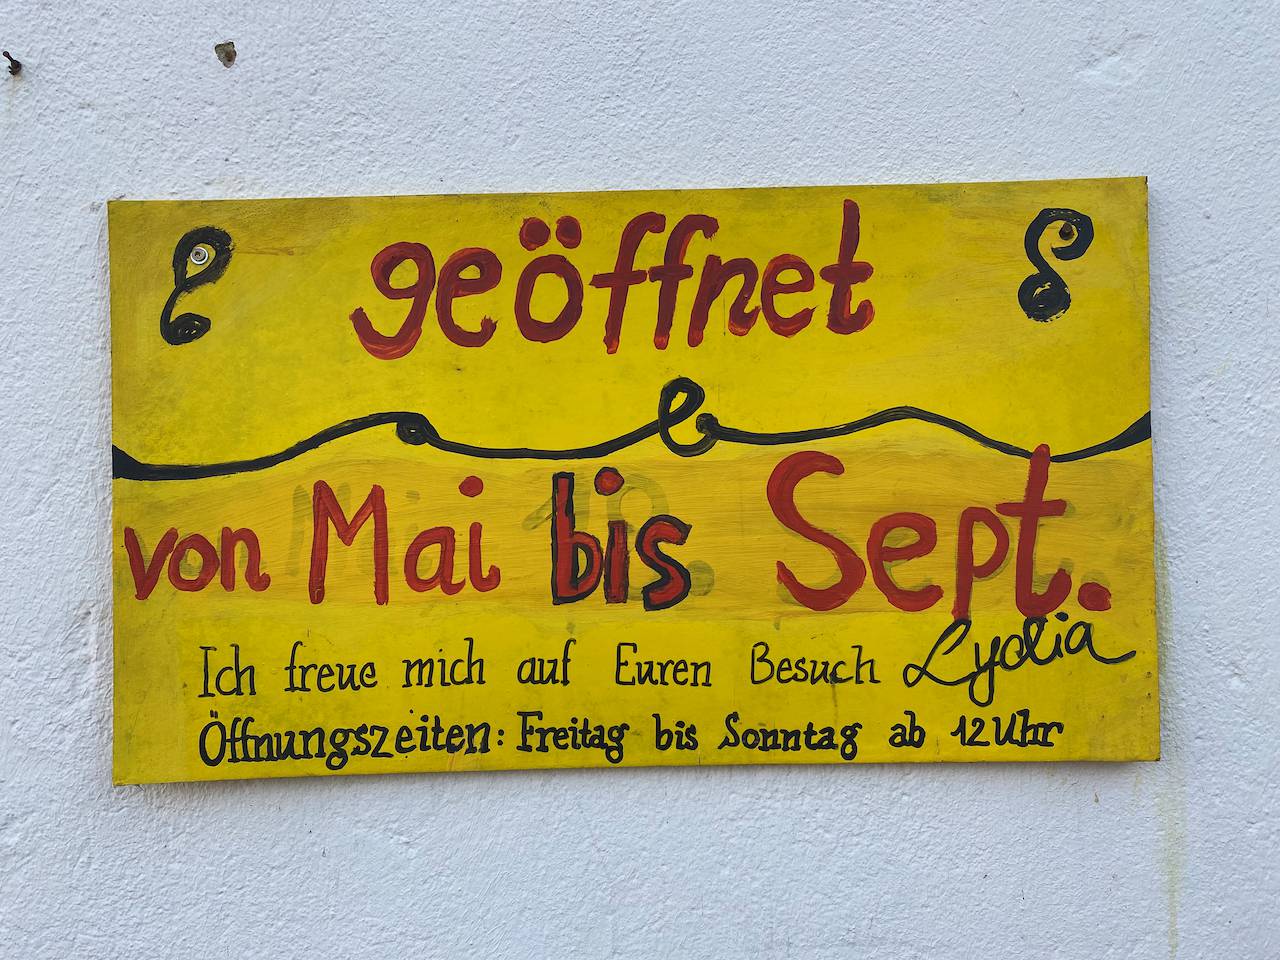 geöffnet
von Mai bis Sept.
Ich freue mich auf Euren Besuch Lydia
Öffnungszeiten: Freitag bis Sonntag ab 12 Uhr